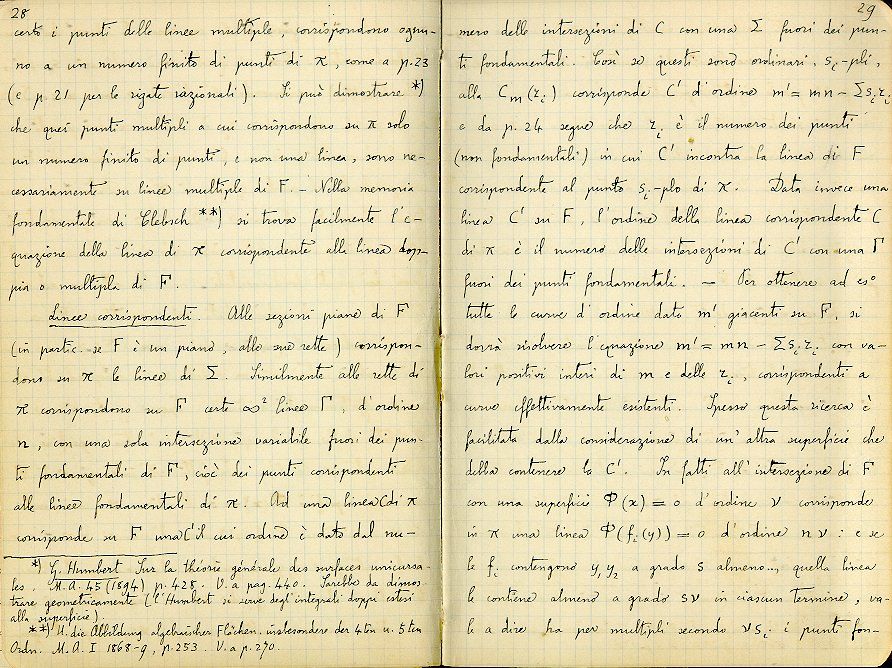 28
certo i punti delle linee multiple, corrispondono ognu-
no a un numero finito di punti di π, come a p. 23
(e p. 21 per le rigate razionali). Si può dimostrare *)
che quei punti multipli a cui corrispondono su π solo
un numero finito di punti, e non una linea, sono ne-
cessariamente su linee multiple di F. – Nella memoria
fondamentale di Clebsch **) si trova facilmente l'e-
quazione della linea di π corrispondente alla linea dop-
pia o multipla di F.
Linee corrispondenti. Alle sezioni piane di F
(in partic. se F è un piano, alle sue rette) corrispon-
dono su π le linee di Σ. Similmente alle rette di
π corrispondono su F certe ∞² linee Γ, d'ordine
n, con una sola intersezione variabile fuori dei pun-
ti fondamentali di F, cioè dei punti corrispondenti
alle linee fondamentali di π. Ad una linea C di π
corrisponde su F una C' il cui ordine è dato dal nu-
*) G. Humbert Sur la théorie générale des surfaces unicursa-
les. M.A. 45 (1894) p. 428. V. a pag. 440. Sarebbe da dimos-
trare geometricamente (l'Humbert si serve degl'integrali doppi estesi
alla superficie).
**) U. die Abbildung algebraischer Flächen. insbesondere der 4ten u. 5ten
Ordn. M.A. I 1868-9, p. 253. V. a p. 270.
29
mero delle intersezioni di C con una Σ fuori dei pun-
ti fondamentali. Così se questi sono ordinari, sᵢ-pli,
alla Cm(rᵢ) corrisponde C' d'ordine m' = mn – Σsᵢrᵢ
e da p. 24 segue che rᵢ è il numero dei punti
(non fondamentali) in cui C' incontra la linea di F
corrispondente al punto sᵢ-plo di π. Data invece una
linea C' su F, l'ordine della linea corrispondente C
di π è il numero delle intersezioni di C' con una Γ
fuori dei punti fondamentali. – Per ottenere ad esº
tutte le curve d'ordine dato m' giacenti su F, si
dovrà risolvere l'equazione m' = mn – Σsᵢrᵢ con va-
lori positivi interi di m e delle rᵢ, corrispondenti a
curve effettivamente esistenti. Spesso questa ricerca è
facilitata dalla considerazione di un'altra superficie che
debba contenere la C'. In fatti all'intersezione di F
con una superficie Φ(x) = 0 d'ordine ν corrisponde
in π una linea Φ(fᵢ(y)) = 0 d'ordine nν: e se
le fᵢ contengono y₁y₂ a grado s almeno..., quella linea
le contiene almeno a grado sν in ciascun termine, va-
le a dire ha per multipli secondo νsᵢ i punti fon-